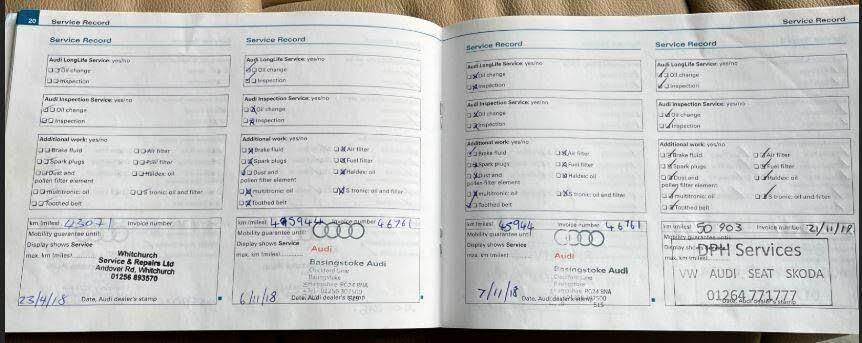 20 Service Record
Service Record
Audi LongLife Service: yes/no
Oil change
Inspection
Audi Inspection Service: yes/no
Oil change
Inspection
Additional work: yes/no
Brake fluid Air filter
Spark plugs Fuel filter
Dust and Haldex: oil
pollen filter element
multitronic: oil S tronic: oil and filter
Toothed belt
km (miles) 43071 Invoice number
Mobility guarantee until:
Display shows Service
max. km (miles)
Whitchurch
Service & Repairs Ltd
Andover Rd, Whitchurch
01256 893570
23/4/18 Date, Audi dealer's stamp
Service Record
Audi LongLife Service: yes/no
Oil change
Inspection
Audi Inspection Service: yes/no
Oil change
Inspection
Additional work: yes/no
Brake fluid Air filter
Spark plugs Fuel filter
Dust and Haldex: oil
pollen filter element
multitronic: oil S tronic: oil and filter
Toothed belt
km (miles) Invoice number 46761
Mobility guarantee until:
Display shows Service
max. km (miles)
Audi
Basingstoke Audi
Basingstoke
6/11/18 Date, Audi dealer's stamp
Service Record
Service Record
Audi LongLife Service: yes/no
Oil change
Inspection
Audi Inspection Service: yes/no
Oil change
Inspection
Additional work: yes/no
Brake fluid Air filter
Spark plugs Fuel filter
Dust and Haldex: oil
pollen filter element
multitronic: oil S tronic: oil and filter
Toothed belt
km (miles) 45944 Invoice number 46761
Mobility guarantee until:
Display shows Service
max. km (miles)
Audi
Basingstoke Audi
Basingstoke
7/11/18 Date, Audi dealer's stamp
Service Record
Audi LongLife Service: yes/no
Oil change
Inspection
Audi Inspection Service: yes/no
Oil change
Inspection
Additional work: yes/no
Brake fluid Air filter
Spark plugs Fuel filter
Dust and Haldex: oil
pollen filter element
multitronic: oil S tronic: oil and filter
Toothed belt
km (miles) 50 903 Invoice number 21/11/18
Mobility guarantee until:
Display shows
max. km (miles)
DPH Services
VW AUDI SEAT SKODA
01264 771777
Date, Audi dealer's stamp